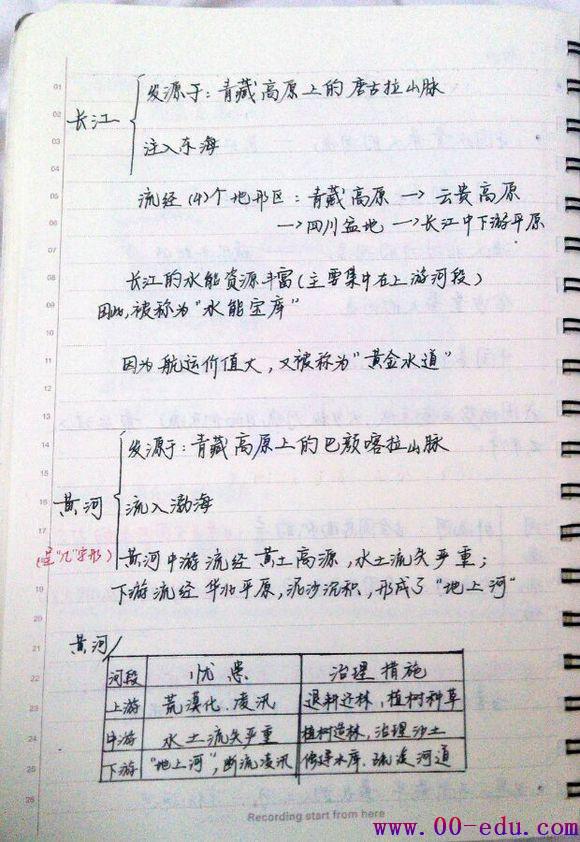 01
02
03
04
05
06
07
08
09
10
11
12
13
14
15
16
17
18
19
20
21
22
23
24
25
26
长江
发源于：青藏高原上的唐古拉山脉
注入东海
流经(4)个地形区：青藏高原→云贵高原
→四川盆地→长江中下游平原
长江的水能资源丰富(主要集中在上游河段)
因此,被称为"水能宝库"
因为航运价值大,又被称为"黄金水道"
黄河
(呈"几"字形)
发源于：青藏高原上的巴颜喀拉山脉
流入渤海
黄河中游流经黄土高源,水土流失严重；
下游流经华北平原,泥沙沉积,形成了"地上河"
黄河
河段 忧患 治理措施
上游 荒漠化、凌汛 退耕还林,植树种草
中游 水土流失严重 植树造林,治理沙土
下游 "地上河",断流凌汛 修建水库、疏浚河道
Recording start from here
www.00-edu.com